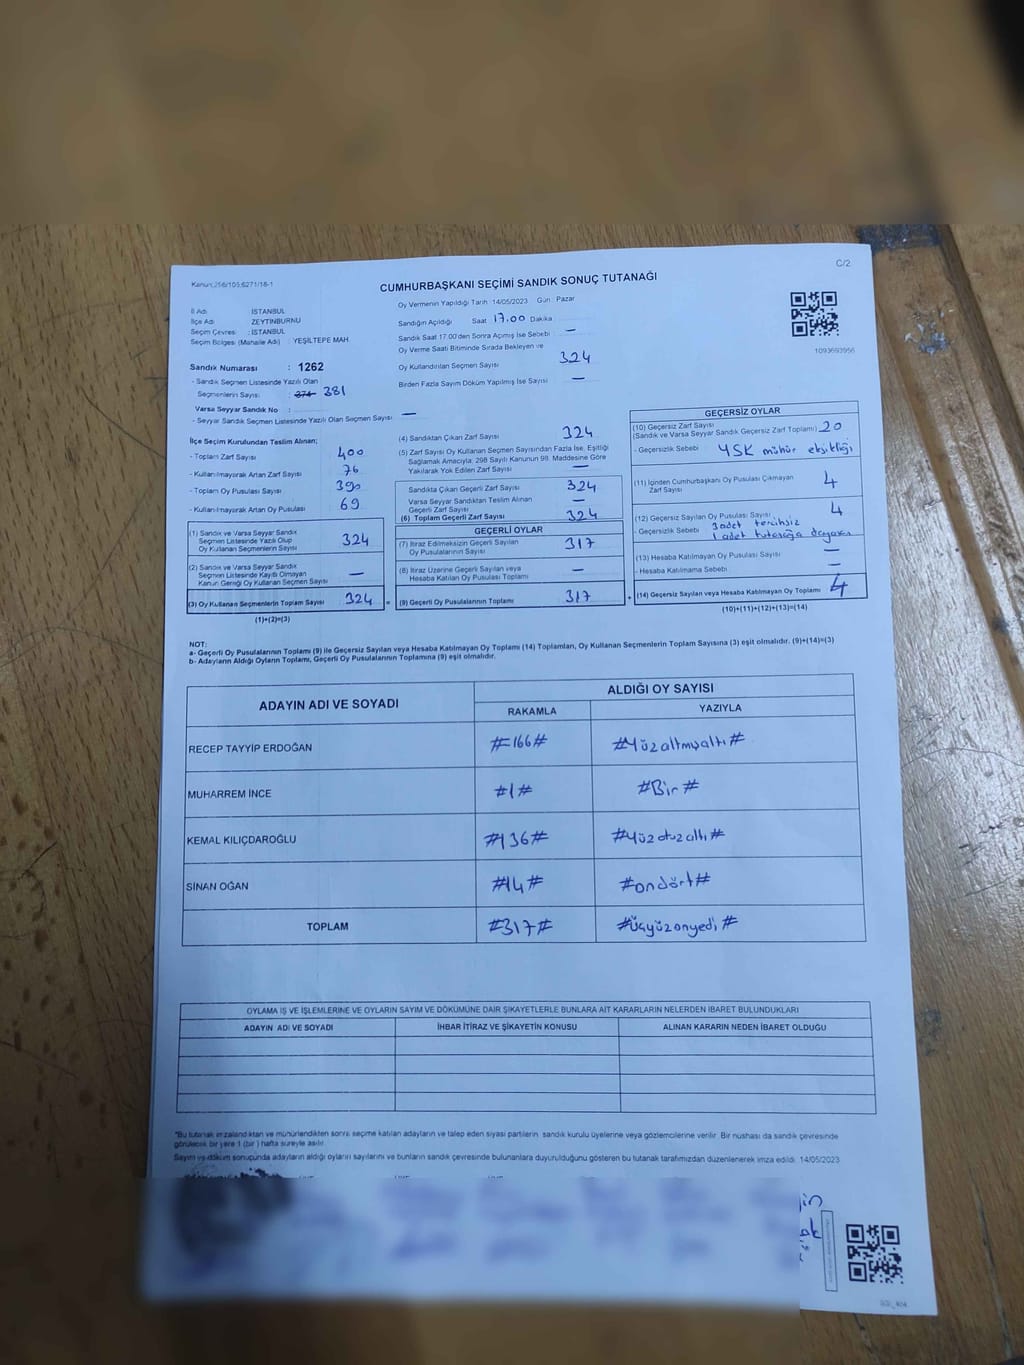 C/2
CUMHURBAŞKANI SEÇİMİ SANDIK SONUÇ TUTANAĞI
Oy Vermenin Yapıldığı Tarih 14/05/2023 Gün: Pazar
İl Adı : İSTANBUL
İlçe Adı : ZEYTİNBURNU
Seçim Çevresi : İSTANBUL
Seçim Bölgesi (Mahalle Adı) : YEŞİLTEPE MAH.
Sandık Numarası : 1262
- Sandık Seçmen Listesinde Yazılı Olan
Seçmenlerin Sayısı : 374 381
Varsa Seyyar Sandık No :
- Seyyar Sandık Seçmen Listesinde Yazılı Olan Seçmen Sayısı —
Sandığın Açıldığı Saat 17.00 Dakika
Sandık Saat 17.00'den Sonra Açılmış İse Sebebi —
Oy Verme Saati Bitiminde Sırada Bekleyen ve
Oy Kullandırılan Seçmen Sayısı 324
Birden Fazla Sayım Döküm Yapılmış İse Sayısı —
1093693956
İlçe Seçim Kurulundan Teslim Alınan;
- Toplam Zarf Sayısı 400
- Kullanılmayarak Artan Zarf Sayısı 76
- Toplam Oy Pusulası Sayısı 390
- Kullanılmayarak Artan Oy Pusulası 69
(1) Sandık ve Varsa Seyyar Sandık
Seçmen Listesinde Yazılı Olup
Oy Kullanan Seçmenlerin Sayısı 324
(2) Sandık ve Varsa Seyyar Sandık
Seçmen Listesinde Kayıtlı Olmayan
Kanun Gereği Oy Kullanan Seçmen Sayısı —
(3) Oy Kullanan Seçmenlerin Toplam Sayısı 324
(1)+(2)=(3)
(4) Sandıktan Çıkan Zarf Sayısı 324
(5) Zarf Sayısı Oy Kullanan Seçmen Sayısından Fazla İse, Eşitliği
Sağlamak Amacıyla; 298 Sayılı Kanunun 98. Maddesine Göre
Yakılarak Yok Edilen Zarf Sayısı —
Sandıkta Çıkan Geçerli Zarf Sayısı 324
Varsa Seyyar Sandıktan Teslim Alınan
Geçerli Zarf Sayısı —
(6) Toplam Geçerli Zarf Sayısı 324
GEÇERLİ OYLAR
(7) İtiraz Edilmeksizin Geçerli Sayılan
Oy Pusulalarının Sayısı 317
(8) İtiraz Üzerine Geçerli Sayılan veya
Hesaba Katılan Oy Pusulası Toplamı —
= (9) Geçerli Oy Pusulalarının Toplamı 317
GEÇERSİZ OYLAR
(10) Geçersiz Zarf Sayısı
(Sandık ve Varsa Seyyar Sandık Geçersiz Zarf Toplamı) 20
- Geçersizlik Sebebi YSK mühür eksikliği
(11) İçinden Cumhurbaşkanı Oy Pusulası Çıkmayan
Zarf Sayısı 4
(12) Geçersiz Sayılan Oy Pusulası Sayısı 4
- Geçersizlik Sebebi 3 adet tercihsiz
1 adet tutanağa
(13) Hesaba Katılmayan Oy Pusulası Sayısı —
- Hesaba Katılmama Sebebi —
+ (14) Geçersiz Sayılan veya Hesaba Katılmayan Oy Toplamı 4
(10)+(11)+(12)+(13)=(14)
NOT:
a- Geçerli Oy Pusulalarının Toplamı (9) ile Geçersiz Sayılan veya Hesaba Katılmayan Oy Toplamı (14) Toplamları, Oy Kullanan Seçmenlerin Toplam Sayısına (3) eşit olmalıdır. (9)+(14)=(3)
b- Adayların Aldığı Oyların Toplamı, Geçerli Oy Pusulalarının Toplamına (9) eşit olmalıdır.
ADAYIN ADI VE SOYADI ALDIĞI OY SAYISI
RAKAMLA YAZIYLA
RECEP TAYYİP ERDOĞAN #166# #Yüzaltmışaltı#
MUHARREM İNCE #1# #Bir#
KEMAL KILIÇDAROĞLU #136# #Yüzotuzaltı#
SİNAN OĞAN #14# #ondört#
TOPLAM #317# #Üçyüzonyedi#
OYLAMA İŞ VE İŞLEMLERİNE VE OYLARIN SAYIM VE DÖKÜMÜNE DAİR ŞİKAYETLERLE BUNLARA AİT KARARLARIN NELERDEN İBARET BULUNDUKLARI
ADAYIN ADI VE SOYADI İHBAR İTİRAZ VE ŞİKAYETİN KONUSU ALINAN KARARIN NEDEN İBARET OLDUĞU
*Bu tutanak imzalandıktan ve mühürlendikten sonra seçime katılan adayların ve talep eden siyasi partilerin sandık kurulu üyelerine veya gözlemcilerine verilir. Bir nushası da sandık çevresinde
görülecek bir yere 1 (bir) hafta süreyle asılır.
Sayım ve döküm sonuçunda adayların aldığı oyların sayılarını ve bunların sandık çevresinde bulunanlara duyurulduğunu gösteren bu tutanak tarafımızdan düzenlenerek imza edildi. 14/05/2023